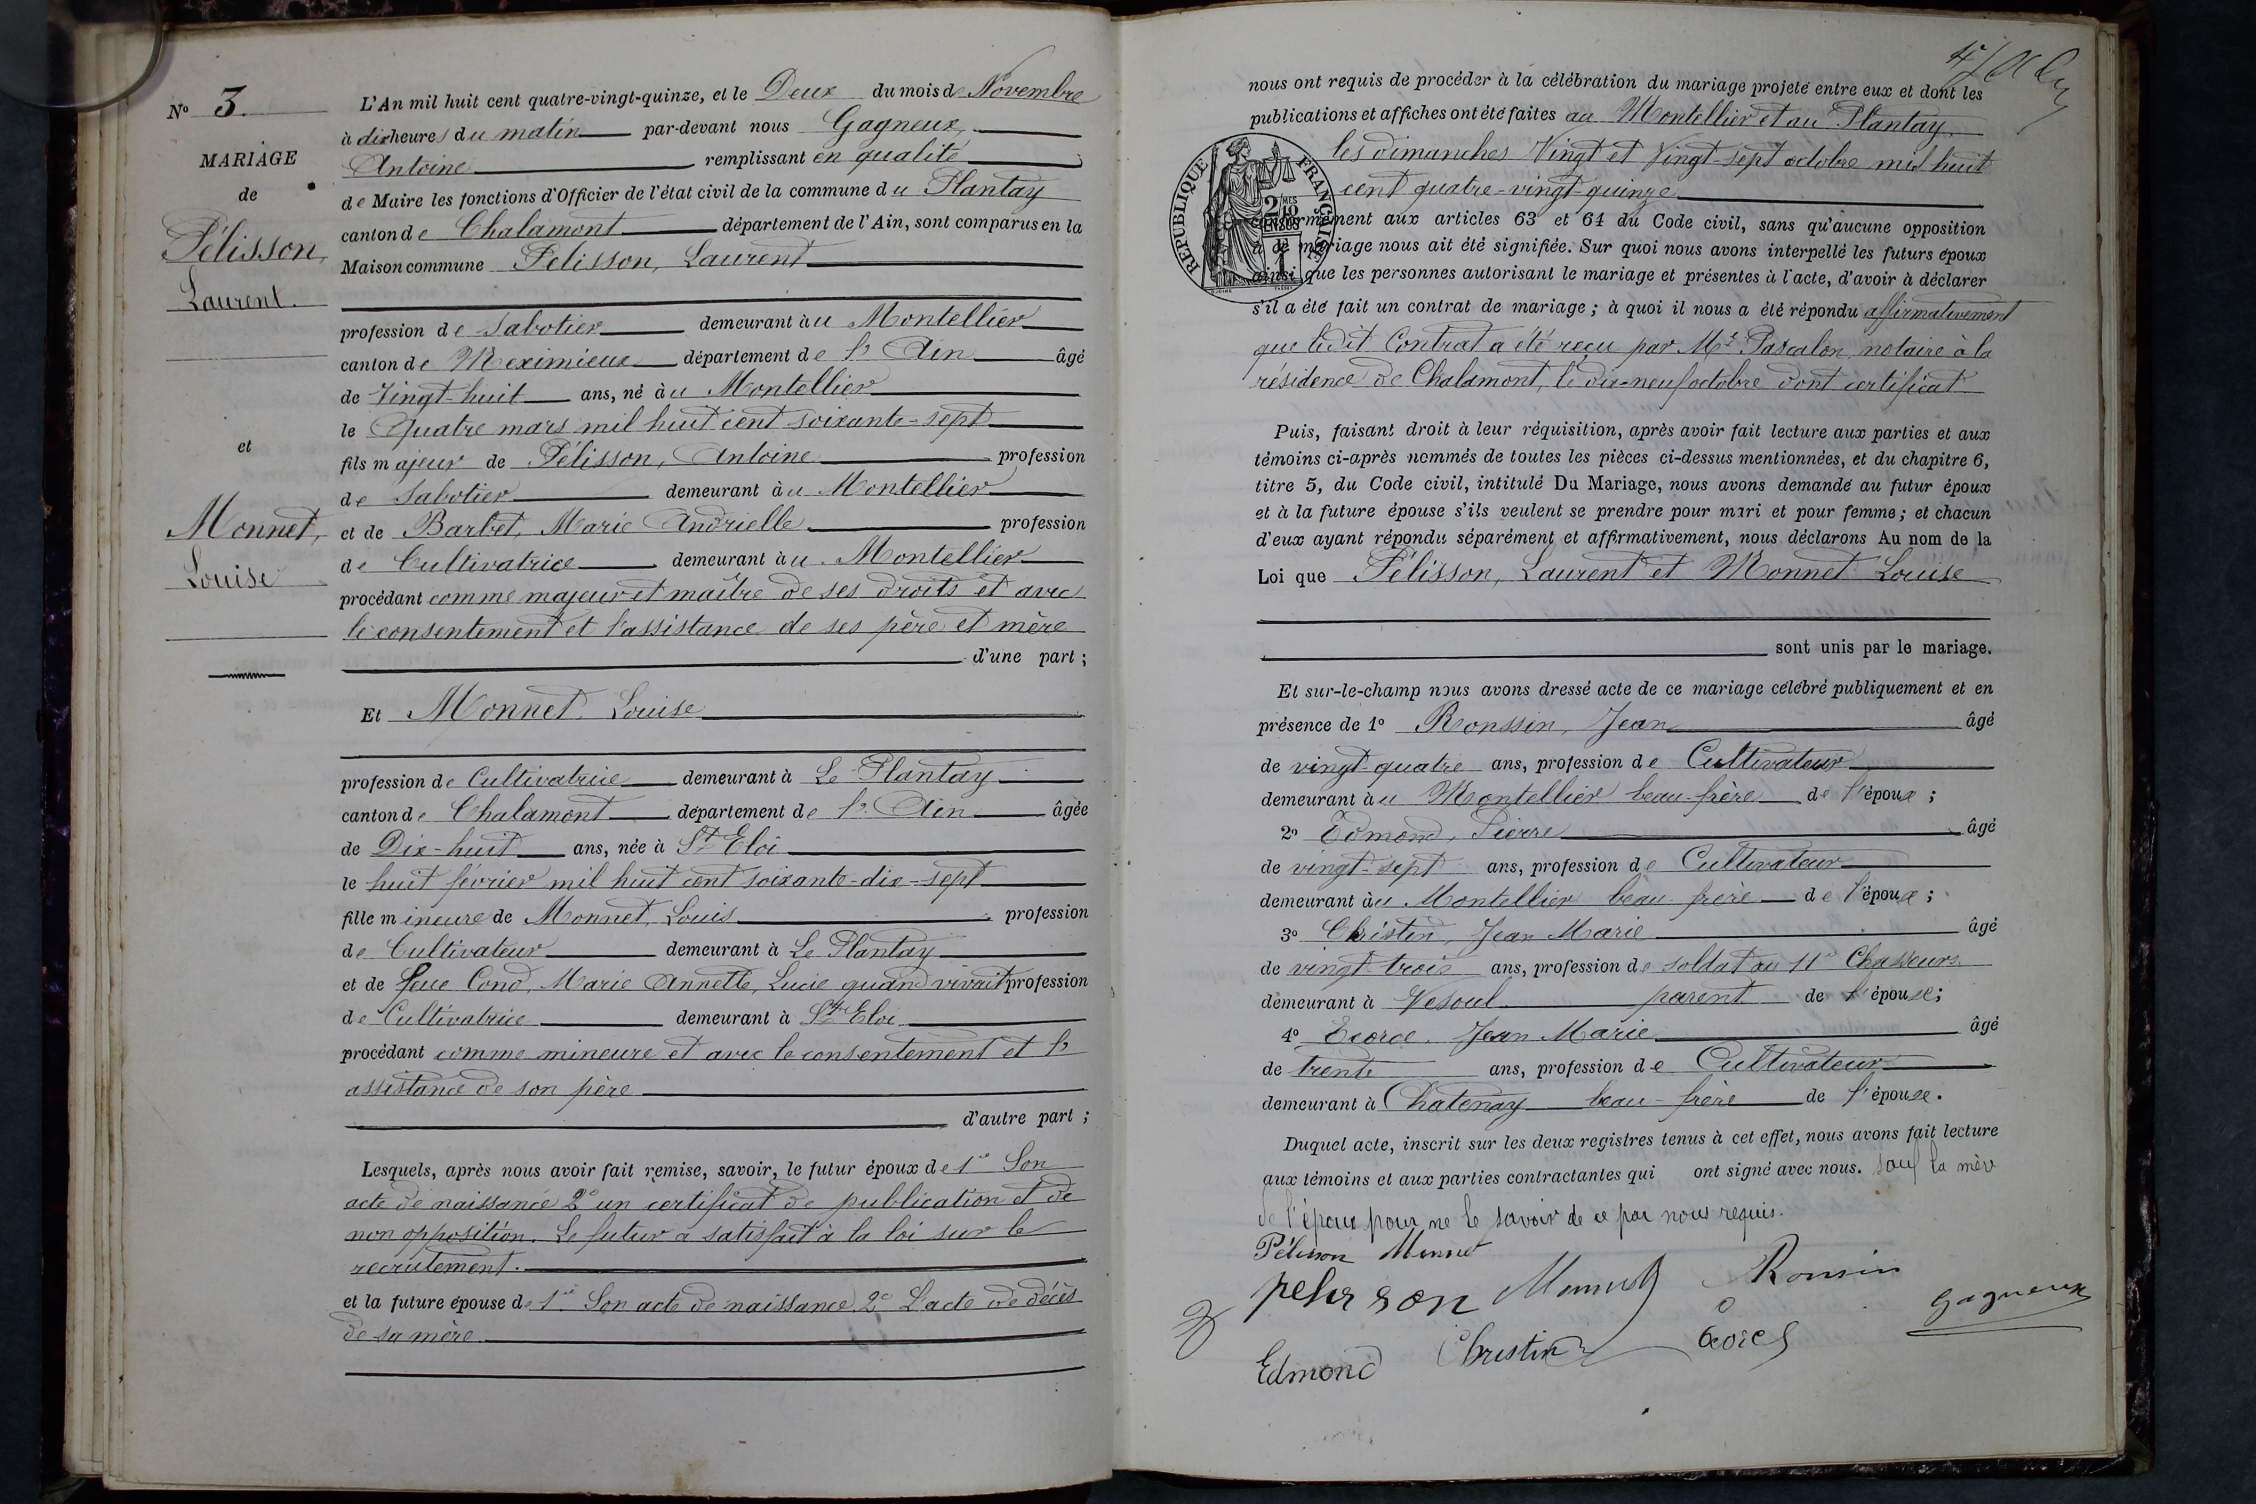 N° 3.
MARIAGE
de
Pélisson,
Laurent.
et
Monnet,
Louise
L'An mil huit cent quatre-vingt-quinze, et le Deux du mois de Novembre
à dix heures du matin par-devant nous Gagneux,
Antoine remplissant en qualité
de Maire les fonctions d'Officier de l'état civil de la commune du Plantay
canton de Chalamont département de l'Ain, sont comparus en la
Maison commune Pélisson, Laurent
profession de Sabotier demeurant à u Montellier
canton de Meximieux département de l'Ain âgé
de Vingt-huit ans, né à u Montellier
le Quatre mars mil huit cent soixante-sept
fils majeur de Pélisson, Antoine profession
de Sabotier demeurant à u Montellier
et de Barbet, Marie Andrielle profession
de Cultivatrice demeurant à u Montellier
procédant comme majeur et maître de ses droits et avec
le consentement et l'assistance de ses père et mère
d'une part ;
Et Monnet Louise
profession de Cultivatrice demeurant à Le Plantay
canton de Chalamont département de l'Ain âgée
de Dix-huit ans, née à St Eloi
le huit février mil huit cent soixante-dix-sept
fille mineure de Monnet, Louis profession
de Cultivateur demeurant à Le Plantay
et de feue Cond, Marie Annette, Lucie quand vivait profession
de Cultivatrice demeurant à St Eloi
procédant comme mineure et avec le consentement et l'
assistance de son père
d'autre part ;
Lesquels, après nous avoir fait remise, savoir, le futur époux de 1° Son
acte de naissance 2° un certificat de publication et de
non opposition. Le futur a satisfait à la loi sur le
recrutement.
et la future épouse de 1° Son acte de naissance 2° L'acte de décès
de sa mère
nous ont requis de procéder à la célébration du mariage projeté entre eux et dont les
publications et affiches ont été faites au Montellier et au Plantay
les dimanches Vingt et Vingt-sept octobre mil huit
cent quatre-vingt quinze
RÉPUBLIQUE FRANÇAISE
conformément aux articles 63 et 64 du Code civil, sans qu'aucune opposition
à de mariage nous ait été signifiée. Sur quoi nous avons interpellé les futurs époux
ainsi que les personnes autorisant le mariage et présentes à l'acte, d'avoir à déclarer
s'il a été fait un contrat de mariage ; à quoi il nous a été répondu affirmativement
que ledit Contrat a été reçu par Me Pascalon notaire à la
résidence de Chalamont, le dix-neuf octobre dont certificat
Puis, faisant droit à leur réquisition, après avoir fait lecture aux parties et aux
témoins ci-après nommés de toutes les pièces ci-dessus mentionnées, et du chapitre 6,
titre 5, du Code civil, intitulé Du Mariage, nous avons demandé au futur époux
et à la future épouse s'ils veulent se prendre pour mari et pour femme ; et chacun
d'eux ayant répondu séparément et affirmativement, nous déclarons Au nom de la
Loi que Pélisson, Laurent et Monnet Louise
sont unis par le mariage.
Et sur-le-champ nous avons dressé acte de ce mariage célébré publiquement et en
présence de 1° Ronssin, Jean âgé
de vingt-quatre ans, profession de Cultivateur
demeurant à u Montellier beau-frère de l'époux ;
2° Edmond, Pierre âgé
de vingt-sept ans, profession de Cultivateur
demeurant à u Montellier beau-frère de l'époux ;
3° Christin, Jean Marie âgé
de vingt trois ans, profession de soldat au 11e Chasseurs
demeurant à Vesoul parent de l'épouse ;
4° Ecorce, Jean Marie âgé
de trente ans, profession de Cultivateur
demeurant à Chatenay beau-frère de l'épouse.
Duquel acte, inscrit sur les deux registres tenus à cet effet, nous avons fait lecture
aux témoins et aux parties contractantes qui ont signé avec nous. sauf la mère
de l'époux pour ne le savoir de ce par nous requis.
Pélisson Monnet
pelisson Monnet Ronsin
Gagneux
Edmond Christin Ecorce